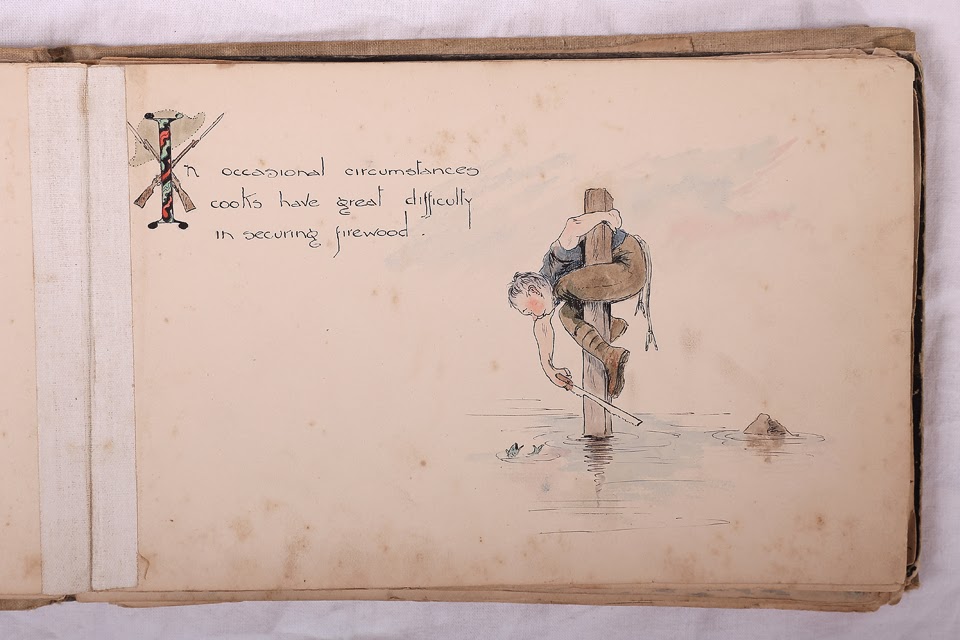 In occasional circumstances
cooks have great difficulty
in securing firewood.